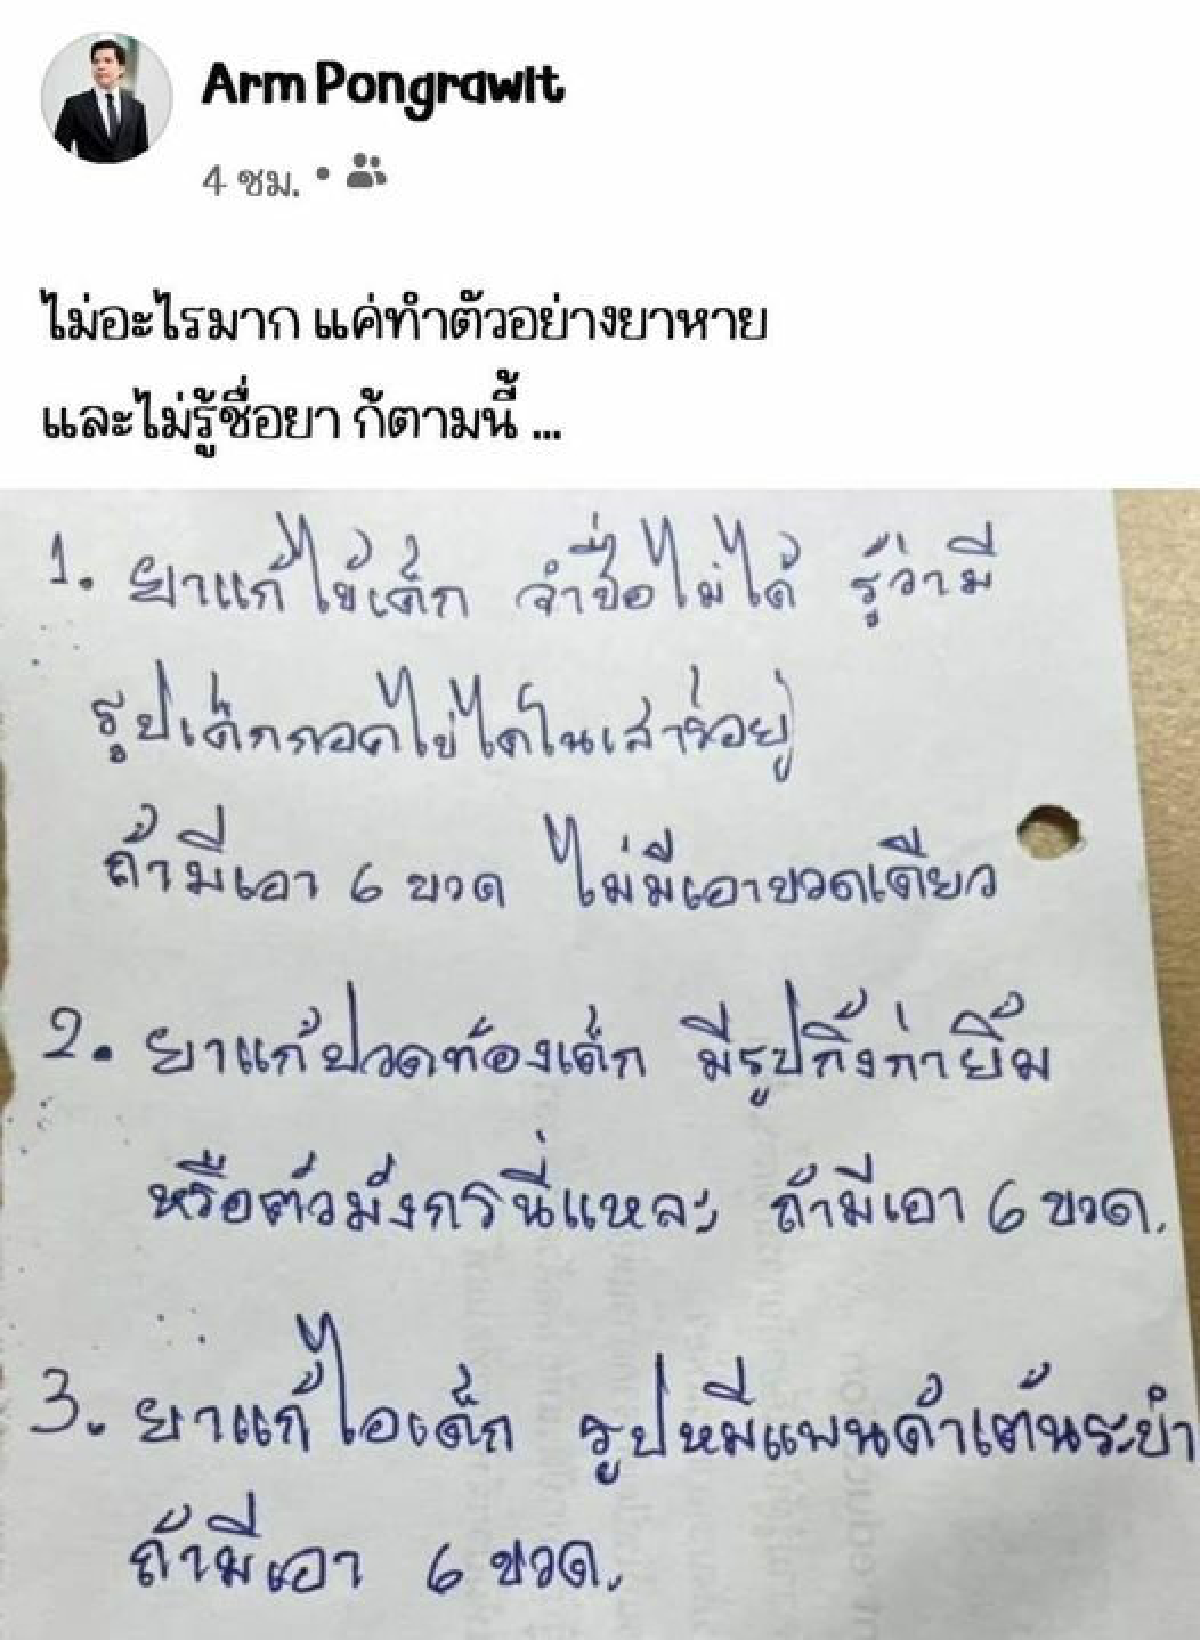 Arm Pongrawit
4 ชม.
ไม่อะไรมาก แค่ทำตัวอย่างยาหาย
และไม่รู้ชื่อยา ก็ตามนี้ ...
1. ยาแก้ไข้เด็ก จำชื่อไม่ได้ รู้ว่ามี
รูปเด็กกอดไข่ไดโนเสาร์อยู่
ถ้ามีเอา 6 ขวด ไม่มีเอาขวดเดียว
2. ยาแก้ปวดท้องเด็ก มีรูปกิ้งก่ายิ้ม
หรือตัวมังกรนี่แหละ ถ้ามีเอา 6 ขวด.
3. ยาแก้ไอเด็ก รูปหมีแพนด้าเต้นระบำ
ถ้ามีเอา 6 ขวด.